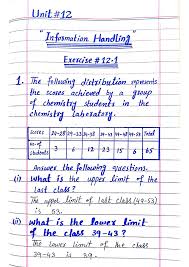 Unit #12
"Information Handling"
Exercise #12.1
1. The following distribution represents
the scores achieved by a group
of chemistry students in the
chemistry laboratory.
Scores 24-28 29-33 34-38 39-43 44-48 49-53 Total
no. of students 3 6 12 23 15 6 65
Answer the following questions.
(i) what is the upper limit of the
last class?
The upper limit of last class (49-53)
is 53.
(ii) what is the lower limit
of the class 39-43?
The lower limit of the class
39-43 is 39.